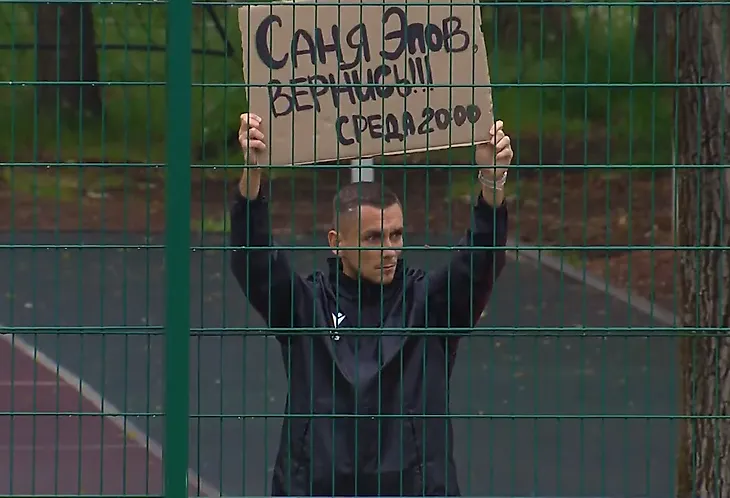 Саня Эпов,
вернись!!!
среда 20:00